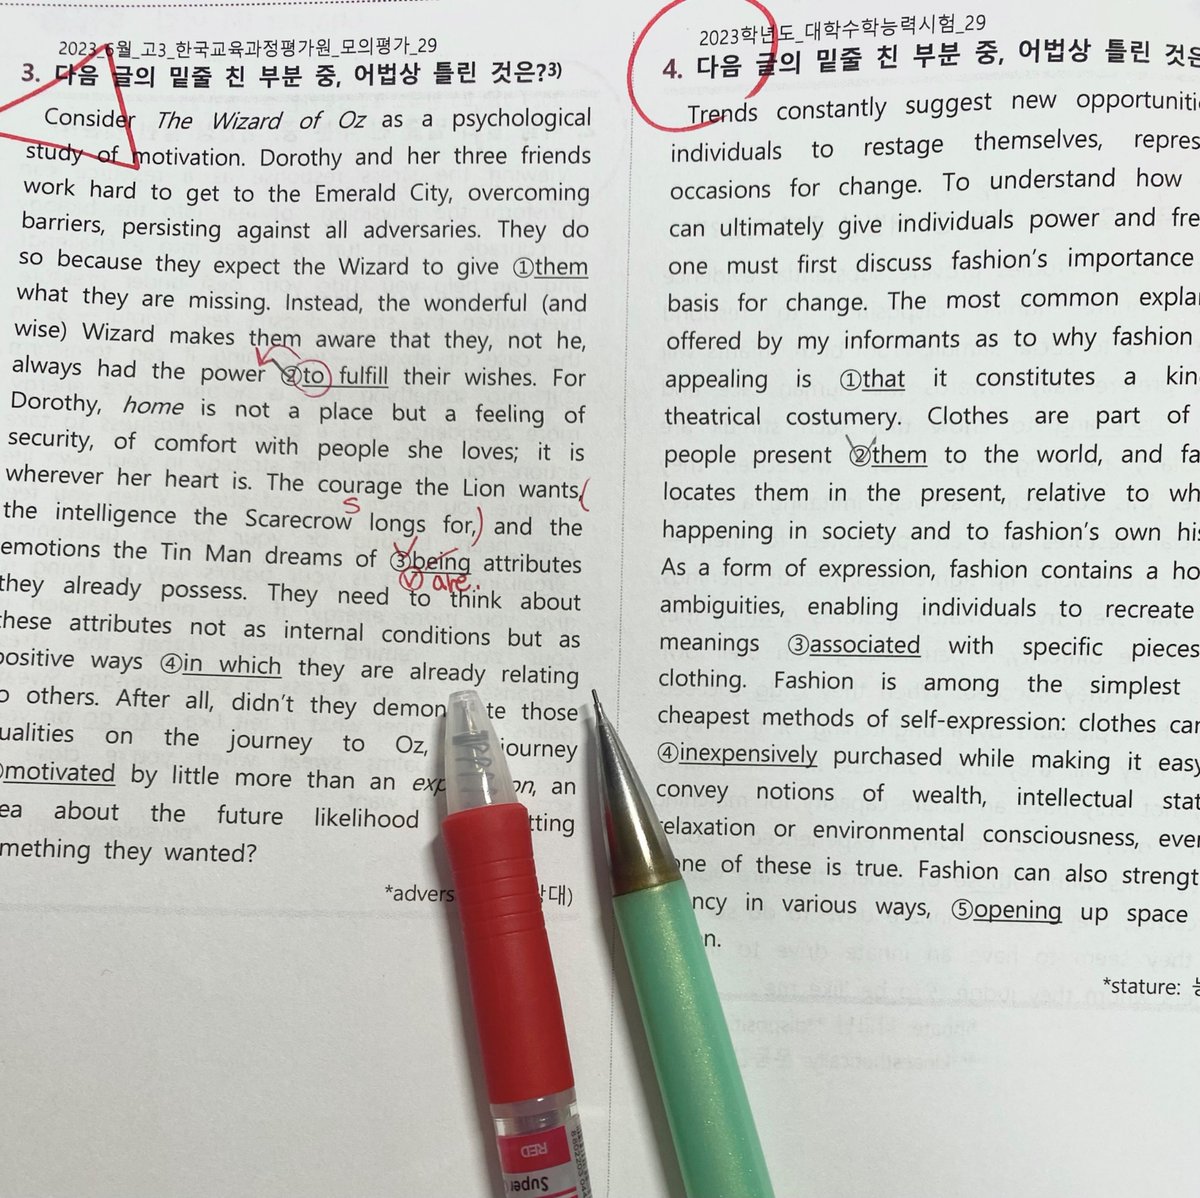 2023_6월_고3_한국교육과정평가원_모의평가_29
3. 다음 글의 밑줄 친 부분 중, 어법상 틀린 것은?3)
Consider The Wizard of Oz as a psychological
study of motivation. Dorothy and her three friends
work hard to get to the Emerald City, overcoming
barriers, persisting against all adversaries. They do
so because they expect the Wizard to give ①them
what they are missing. Instead, the wonderful (and
wise) Wizard makes them aware that they, not he,
always had the power ②to fulfill their wishes. For
Dorothy, home is not a place but a feeling of
security, of comfort with people she loves; it is
wherever her heart is. The courage the Lion wants,
the intelligence the Scarecrow longs for, and the
S
emotions the Tin Man dreams of ③being attributes
V are.
they already possess. They need to think about
these attributes not as internal conditions but as
positive ways ④in which they are already relating
o others. After all, didn't they demon te those
ualities on the journey to Oz, journey
motivated by little more than an exp on, an
ea about the future likelihood tting
mething they wanted?
*advers 대)
2023학년도_대학수학능력시험_29
4. 다음 글의 밑줄 친 부분 중, 어법상 틀린 것은
Trends constantly suggest new opportuniti
individuals to restage themselves, repres
occasions for change. To understand how
can ultimately give individuals power and fre
one must first discuss fashion's importance
basis for change. The most common expla
offered by my informants as to why fashion
appealing is ①that it constitutes a kin
theatrical costumery. Clothes are part of
people present ②them to the world, and fa
locates them in the present, relative to wh
happening in society and to fashion's own his
As a form of expression, fashion contains a ho
ambiguities, enabling individuals to recreate
meanings ③associated with specific pieces
clothing. Fashion is among the simplest
cheapest methods of self-expression: clothes can
④inexpensively purchased while making it easy
convey notions of wealth, intellectual stat
relaxation or environmental consciousness, even
one of these is true. Fashion can also strength
ncy in various ways, ⑤opening up space
n.
*stature:
RED
Super